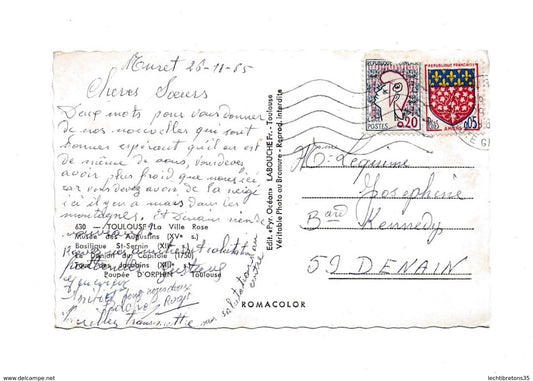 Muret 26-11-65
Cheres Sœurs
Deux mots pour vous donner
de nos nouvelles qui sont
bonnes espérant qu'il en est
de même de vous, vous devez
avoir plus froid que nous ici
car vous devez avoir de la neige
ici il y en a mais dans les
montagnes. Et Denain
630 - TOULOUSE La Ville Rose
Musée des Augustins (XVe s.)
Basilique St-Sernin (XIe s.)
Le Donjon du Capitole (1750)
Jacobins
Poupée D'ORPHIN Toulouse
salutations au
centre
Edit. «Pyr. Océan» LABOUCHE Fr. - Toulouse
Véritable Photo au Bromure - Reprod. interdite
ROMACOLOR
REPUBLIQUE FRANÇAISE
POSTES 0,20
REPUBLIQUE FRANÇAISE
POSTES 0,05
AMIENS
Mme Lequime
Josephine
Bard Kennedy
59 DENAIN
© lechtibretons35